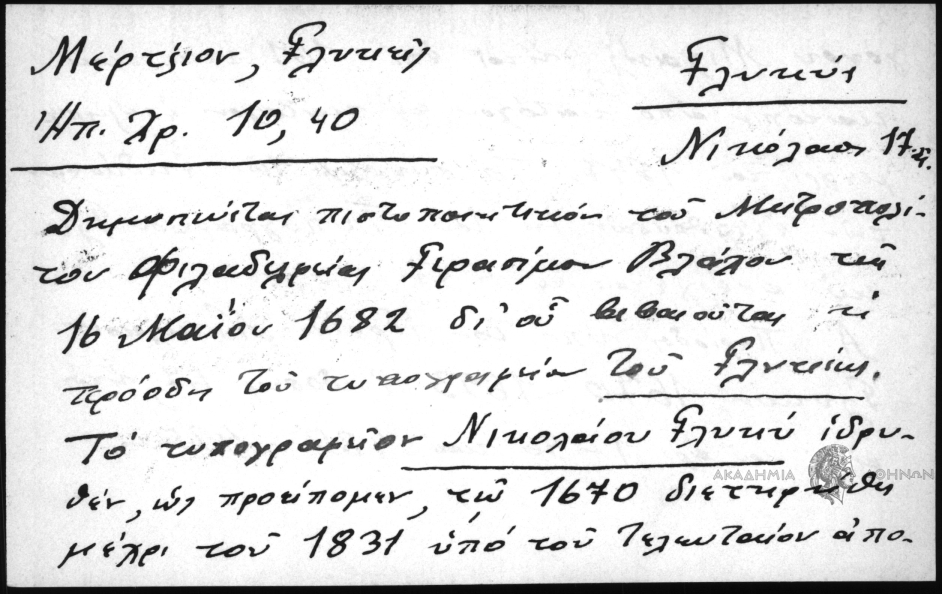 Μέρτζιον, Γλυκεῖς
Ἠπ. Χρ. 10, 40
Γλυκύς
Νικόλαος 17
Δημοσιεύεται πιστοποιητικόν τοῦ Μητροπολί-
του Φιλαδελφείας Γερασίμου Βλάχου τῆς
16 Μαΐου 1682 δι' οὗ βεβαιοῦται ἡ
πρόοδος τοῦ τυπογραφείου τοῦ Γλυκέως.
Τό τυπογραφεῖον Νικολάου Γλυκύ ἱδρυ-
θέν, ὡς προείπομεν, τῷ 1670 διετηρήθη
μέχρι τοῦ 1831 ὑπό τοῦ τελευταίου ἀπο-
ΑΚΑΔΗΜΙΑ ΑΘΗΝΩΝ